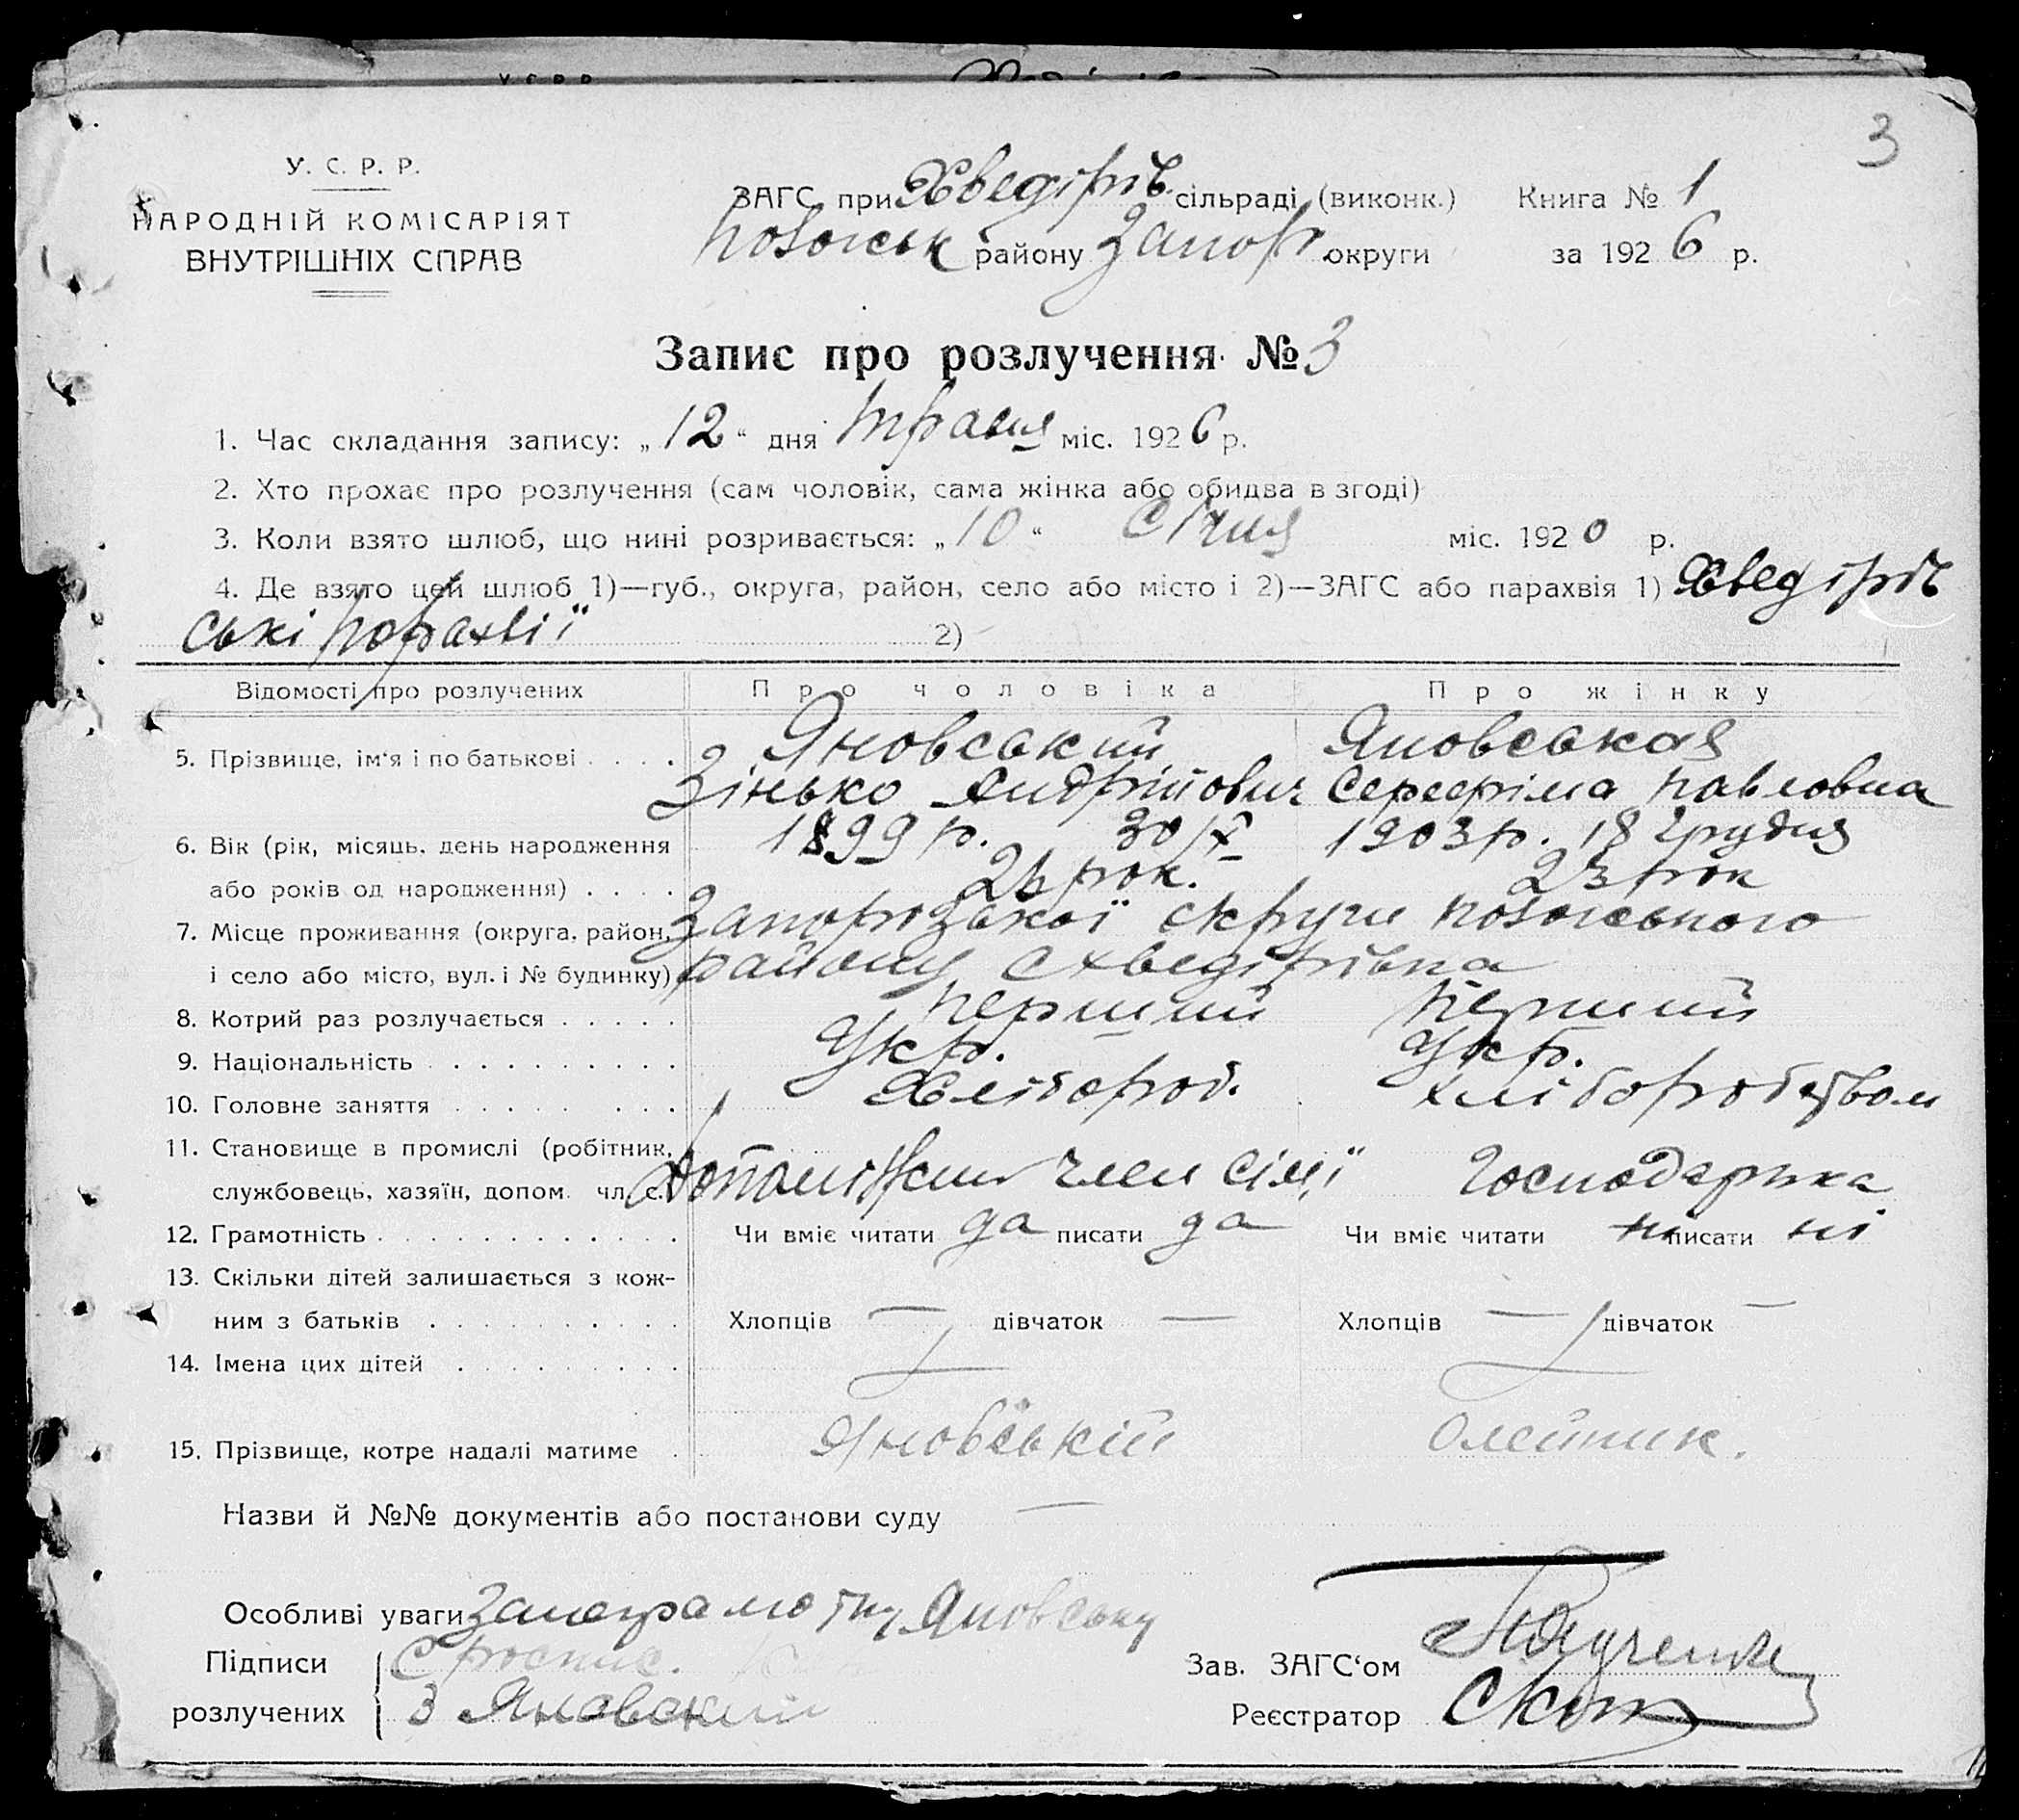 3
У. С. Р. Р.
НАРОДНІЙ КОМІСАРІЯТ
ВНУТРІШНІХ СПРАВ
ЗАГС при Хведірів. сільраді (виконк.) Книга № 1
району Запор округи за 1926 р.
Запис про розлучення № 3
1. Час складання запису: „12“ дня Травня міс. 1926 р.
2. Хто прохає про розлучення (сам чоловік, сама жінка або обидва в згоді)
3. Коли взято шлюб, що нині розривається: „10“ Січня міс. 1920 р.
4. Де взято цей шлюб 1)—губ., округа, район, село або місто і 2)—ЗАГС або парахвія 1) Хведірів
ські парахвії 2)
Відомості про розлучених Про чоловіка Про жінку
5. Прізвище, ім‘я і по батькові . . . . Яновський Яновськая
Зінько Андрійович Серефіма Павловна
6. Вік (рік, місяць, день народження 1899 р. 30/X 1903 р. 18 Грудня
або років од народження) . . . . рок. 23 рок
7. Місце проживання (округа, район, Запорізької округи
і село або місто, вул. і № будинку) району с Хведірівка
8. Котрий раз розлучається . . . . . перший перший
9. Національність . . . . . . . . . . Укр. Укр.
10. Головне заняття . . . . . . . . Хлібороб. хлібороботвом
11. Становище в промислі (робітник,
службовець, хазяїн, допом. чл. с.) Допоміжни член сімї Господарька
12. Грамотність . . . . . . . . . . . . Чи вміє читати да писати да Чи вміє читати ні писати ні
13. Скільки дітей залишається з кож-
ним з батьків . . . . . . . . . . Хлопців — дівчаток — Хлопців — дівчаток —
14. Імена цих дітей . . . . . . . . .
15. Прізвище, котре надалі матиме . Яновській Олейник.
Назви й №№ документів або постанови суду —
Особливі уваги За неграмотну Яновську
Підписи роспис.
Зав. ЗАГС‘ом
розлучених З Яновский
Реєстратор